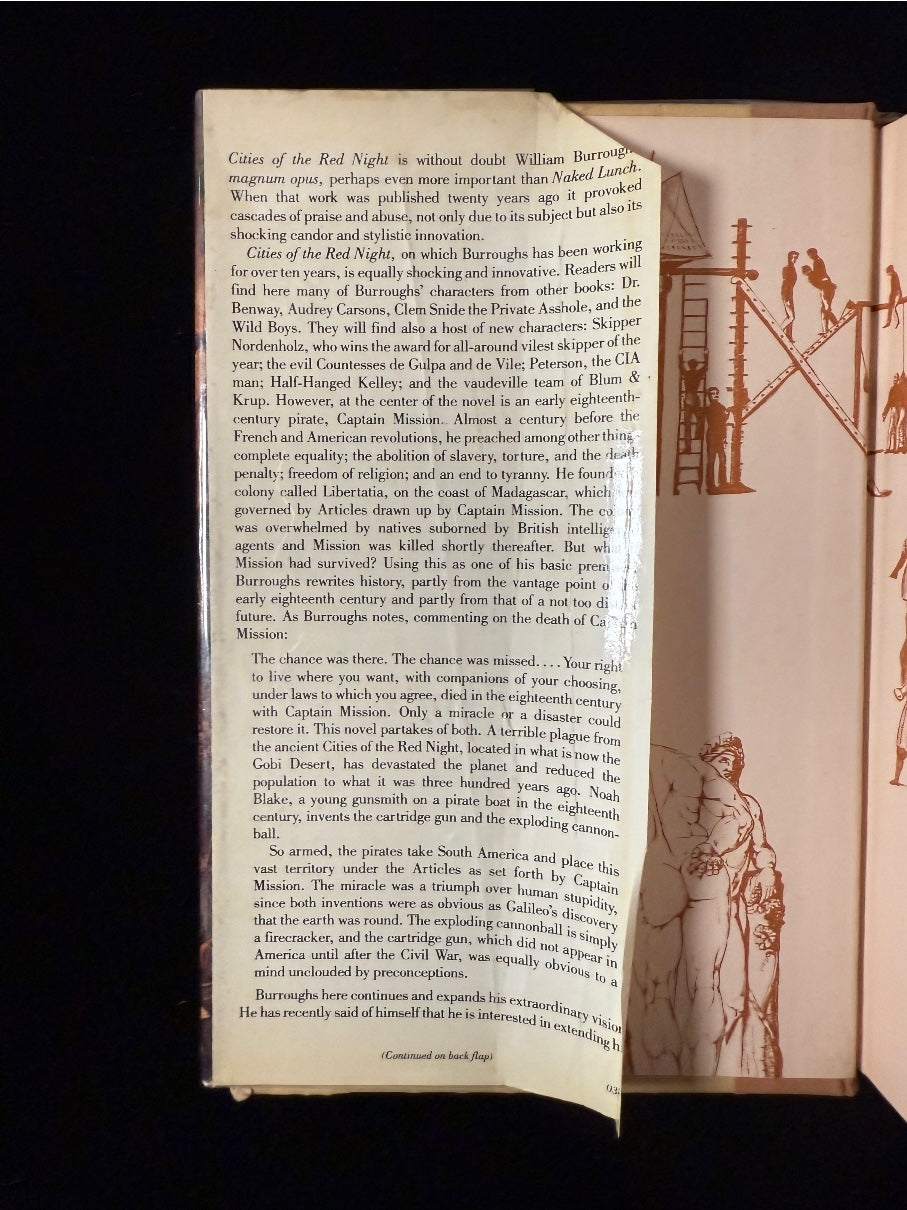 Cities of the Red Night is without doubt William
magnum opus, perhaps even more important than Naked Lunch.
When that work was published twenty years ago it provoked
cascades of praise and abuse, not only due to its subject but also its
shocking candor and stylistic innovation.
Cities of the Red Night, on which Burroughs has been working
for over ten years, is equally shocking and innovative. Readers will
find here many of Burroughs' characters from other books: Dr.
Benway, Audrey Carsons, Clem Snide the Private Asshole, and the
Wild Boys. They will find also a host of new characters: Skipper
Nordenholz, who wins the award for all-around vilest skipper of the
year; the evil Countesses de Gulpa and de Vile; Peterson, the CIA
man; Half-Hanged Kelley; and the vaudeville team of Blum &
Krup. However, at the center of the novel is an early eighteenth-
century pirate, Captain Mission. Almost a century before the
French and American revolutions, he preached among other things
complete equality; the abolition of slavery, torture, and the death
penalty; freedom of religion; and an end to tyranny. He
colony called Libertatia, on the coast of Madagascar, which
governed by Articles drawn up by Captain Mission. The
was overwhelmed by natives suborned by British
agents and Mission was killed shortly thereafter. But
Mission had survived? Using this as one of his basic
Burroughs rewrites history, partly from the vantage point
early eighteenth century and partly from that of a not too
future. As Burroughs notes, commenting on the death of Captain
Mission:
The chance was there. The chance was missed.... Your right
to live where you want, with companions of your choosing,
under laws to which you agree, died in the eighteenth century
with Captain Mission. Only a miracle or a disaster could
restore it. This novel partakes of both. A terrible plague from
the ancient Cities of the Red Night, located in what is now the
Gobi Desert, has devastated the planet and reduced the
population to what it was three hundred years ago. Noah
Blake, a young gunsmith on a pirate boat in the eighteenth
century, invents the cartridge gun and the exploding cannon-
ball.
So armed, the pirates take South America and place this
vast territory under the Articles as set forth by Captain
Mission. The miracle was a triumph over human stupidity,
since both inventions were as obvious as Galileo's discovery
that the earth was round. The exploding cannonball is simply
a firecracker, and the cartridge gun, which did not appear in
America until after the Civil War, was equally obvious to a
mind unclouded by preconceptions.
Burroughs here continues and expands his extraordinary vision
He has recently said of himself that he is interested in extending
(Continued on back flap)